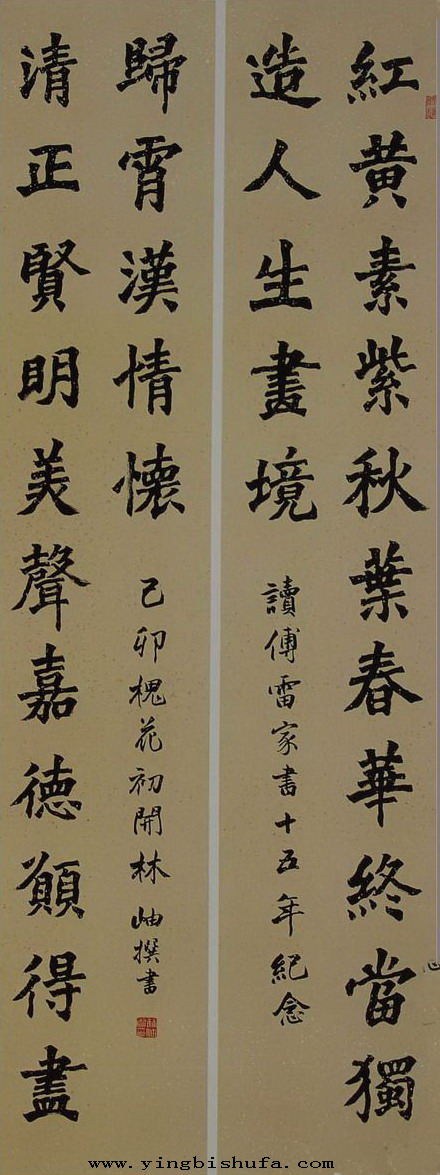 紅黃素紫秋葉春華終當獨
造人生畫境
讀傅雷家書十五年紀念
清正賢明美聲嘉德願得盡
歸霄漢情懷
己卯槐花初開林岫撰書
www.yingbishufa.com